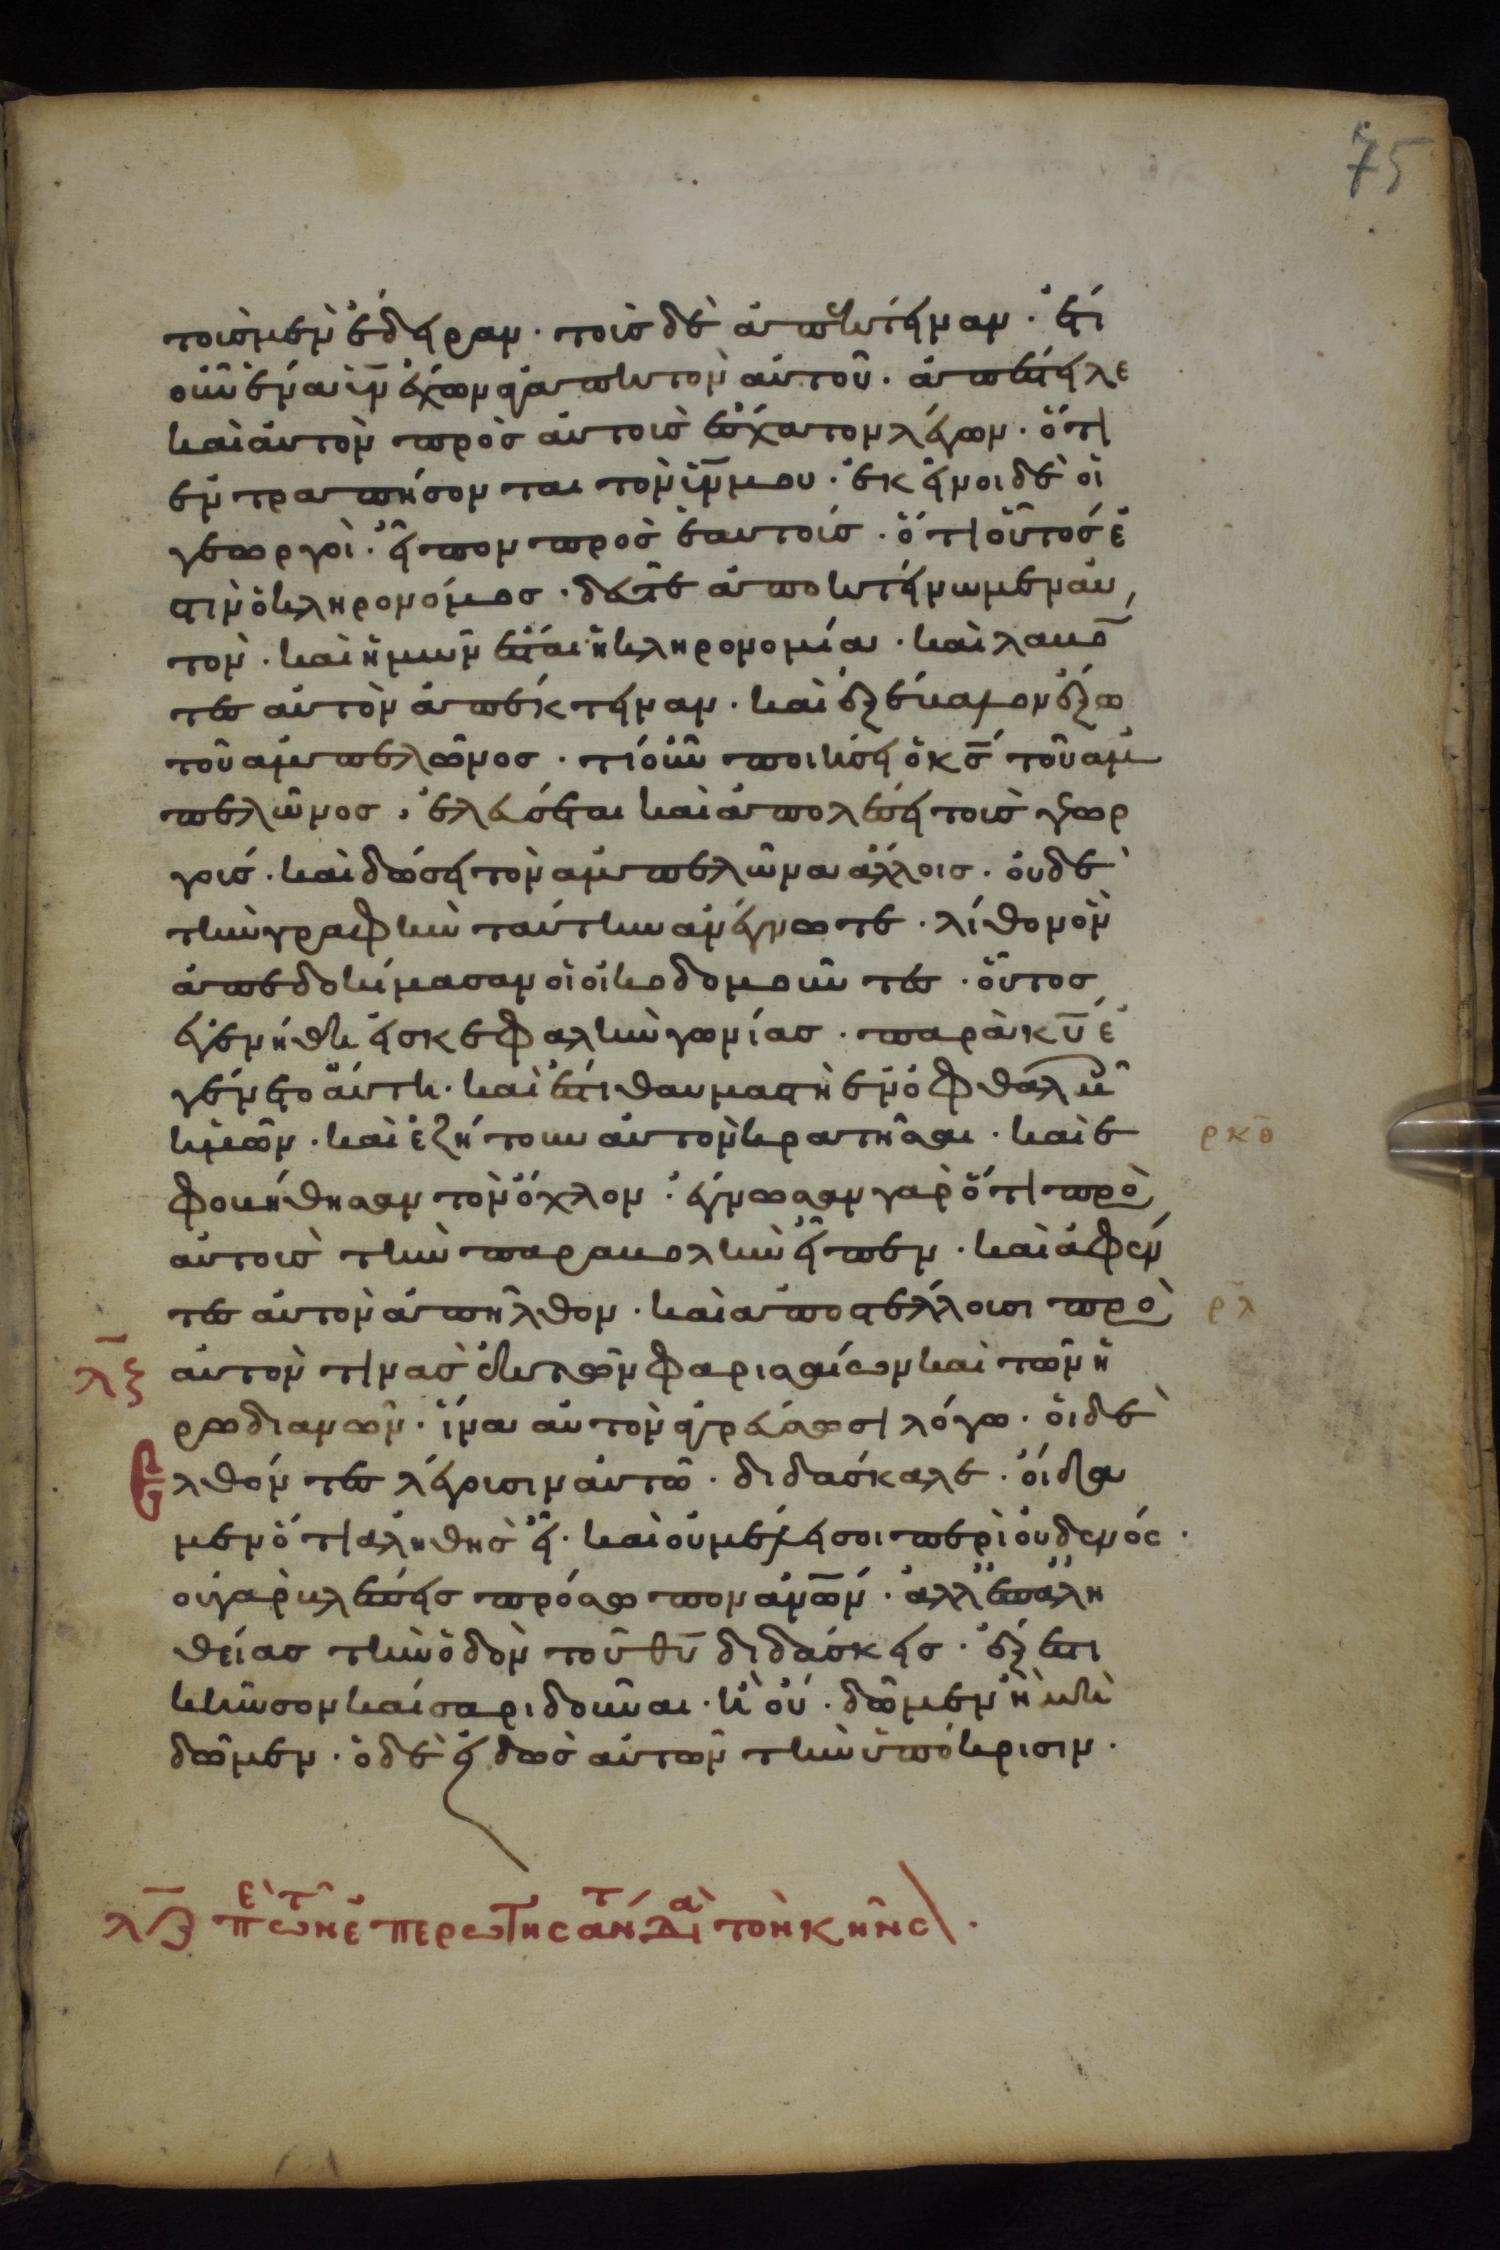 75
τοὺς μὲν δέραν· τοὺς δὲ ἀποκτέναν· ἔτι
οὖν ἕνα ὑν̅ ἔχων ἀγαπητὸν αὐτοῦ. ἀπέστειλε
καὶ αὐτὸν πρὸς αὐτοὺς ἔσχατον λέγων· ὅτι
ἐντραπήσονται τὸν ὑν̅ μου· ἐκεῖνοι δὲ οἱ
γεωργοὶ· εἶπον πρὸς ἑαυτούς· ὅτι οὗτός ἐ
στιν ὁ κληρονόμος· δεῦτε ἀποκτείνωμεν αὐ
τὸν· καὶ ἡμῶν ἔσται ἡ κληρονομία· καὶ λαβό
τες αὐτὸν ἀπέκτειναν· καὶ ἐξέβαλον ἔξω
τοῦ ἀμπελῶνος· τί οὖν ποιήσει ὁ κς̅ τοῦ ἀμ
πελῶνος· ἐλεύσεται καὶ ἀπολέσει τοὺς γεωρ
γούς· καὶ δώσει τὸν ἀμπελῶνα ἄλλοις· οὐδὲ
τὴν γραφὴν ταύτην ἀνέγνωτε· λίθον ὃν
ἀπεδοκίμασαν οἱ οἰκοδομοῦντες· οὗτος
ἐγενήθη εἰς κεφαλὴν γωνίας· παρὰ κυ̅ ἐ
γένετο αὕτη· καὶ ἔστι θαυμαστὴ ἐν ὀφθαλμοῖ
ἡμῶν· καὶ ἐζήτουν αὐτὸν κρατῆσαι· καὶ ἐ ρκθ
φοβήθησαν τὸν ὄχλον· ἔγνωσαν γὰρ ὅτι πρὸ
αὐτοὺς τὴν παραβολὴν εἶπεν· καὶ ἀφέν
τες αὐτὸν ἀπῆλθον· καὶ ἀποστέλλουσι πρὸ ρλ
λξ αὐτὸν τινὰς ἐκ τῶν φαρισαίων καὶ τῶν ἡ
ρωδιανῶν· ἵνα αὐτὸν ἀγρεύσωσι λόγω· οἱ δὲ
Ἐλθόντες λέγουσιν αὐτῶ· διδάσκαλε· οἴδα
μεν ὅτι ἀληθὴς εἶ· καὶ οὐ μέλει σοι περὶ οὐδενός·
οὐ γὰρ βλέπεις πρόσωπον ἀνω̅ν· ἀλλ' ἐπ' ἀλη
θείας τὴν ὁδὸν τοῦ θυ̅ διδάσκεις· ἔξεστι
κῆνσον καίσαρι δοῦναι· ἢ οὔ· δῶμεν ἢ μὴ
δῶμεν· ὁ δὲ εἰδὼς αὐτῶν τὴν ὑπόκρισιν·